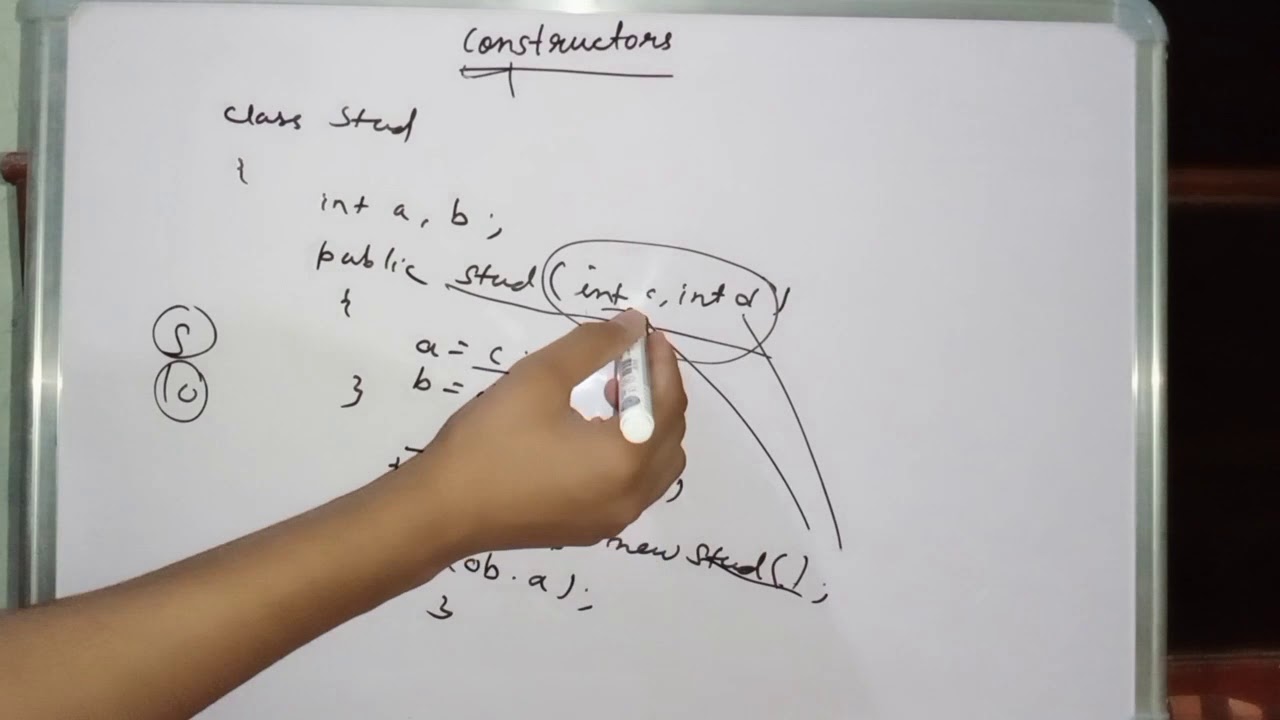 Constructors
class Stud
{
int a, b;
public Stud (int c, int d)
{
5
a = c
10
b =
}
new Stud( );
(ob.a);
}